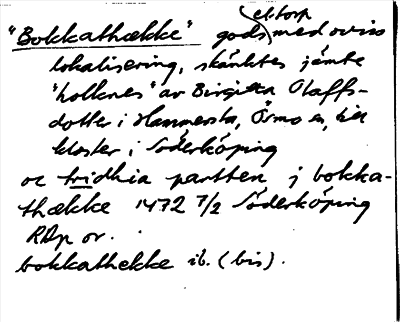 "Bokkathække" gods ektorp med oviss
lokalisering, skänktes jämte
"holknes" av Birgitta Olaffs-
dotter i Hammersta, Ösmo sn, till
kloster i Söderköping
oc tridhia partten j bokka-
thække 1472 7/2 Söderköping
RAp or.
bokkathekke ib. (bis).